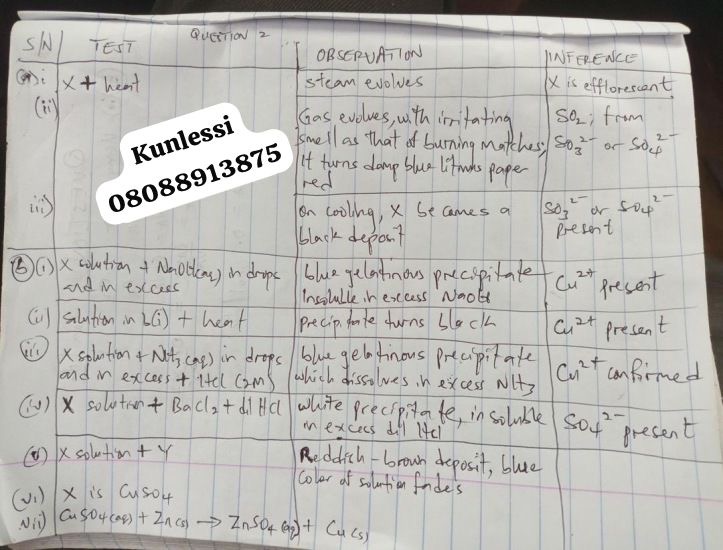 QUESTION 2
S/N TEST OBSERVATION INFERENCE
(a) i X + heat steam evolves X is efflorescent
(ii) Gas evolves, with irritating SO2; from
smell as that of burning matches; SO3²⁻ or SO4²⁻
It turns damp blue litmus paper
red
iii) on cooling, X becames a SO3²⁻ or SO4²⁻
black deposit present
Kunlessi
08088913875
(b)(i) X solution + NaOH(aq) in drops blue gelatinous precipitate Cu²⁺ present
and in excess Insoluble in excess NaOH
(ii) Solution in b(i) + heat precipitate turns black Cu²⁺ present
(iii) X solution + NH3(aq) in drops blue gelatinous precipitate Cu²⁺ confirmed
and in excess + HCl (2M) which dissolves in excess NH3
(iv) X solution + BaCl2 + dil HCl white precipitate, insoluble SO4²⁻ present
in excess dil HCl
(v) X solution + Y Reddish-brown deposit, blue
Color of solution fades
(vi) X is CuSO4
Vii) CuSO4(aq) + Zn(s) → ZnSO4(aq) + Cu(s)